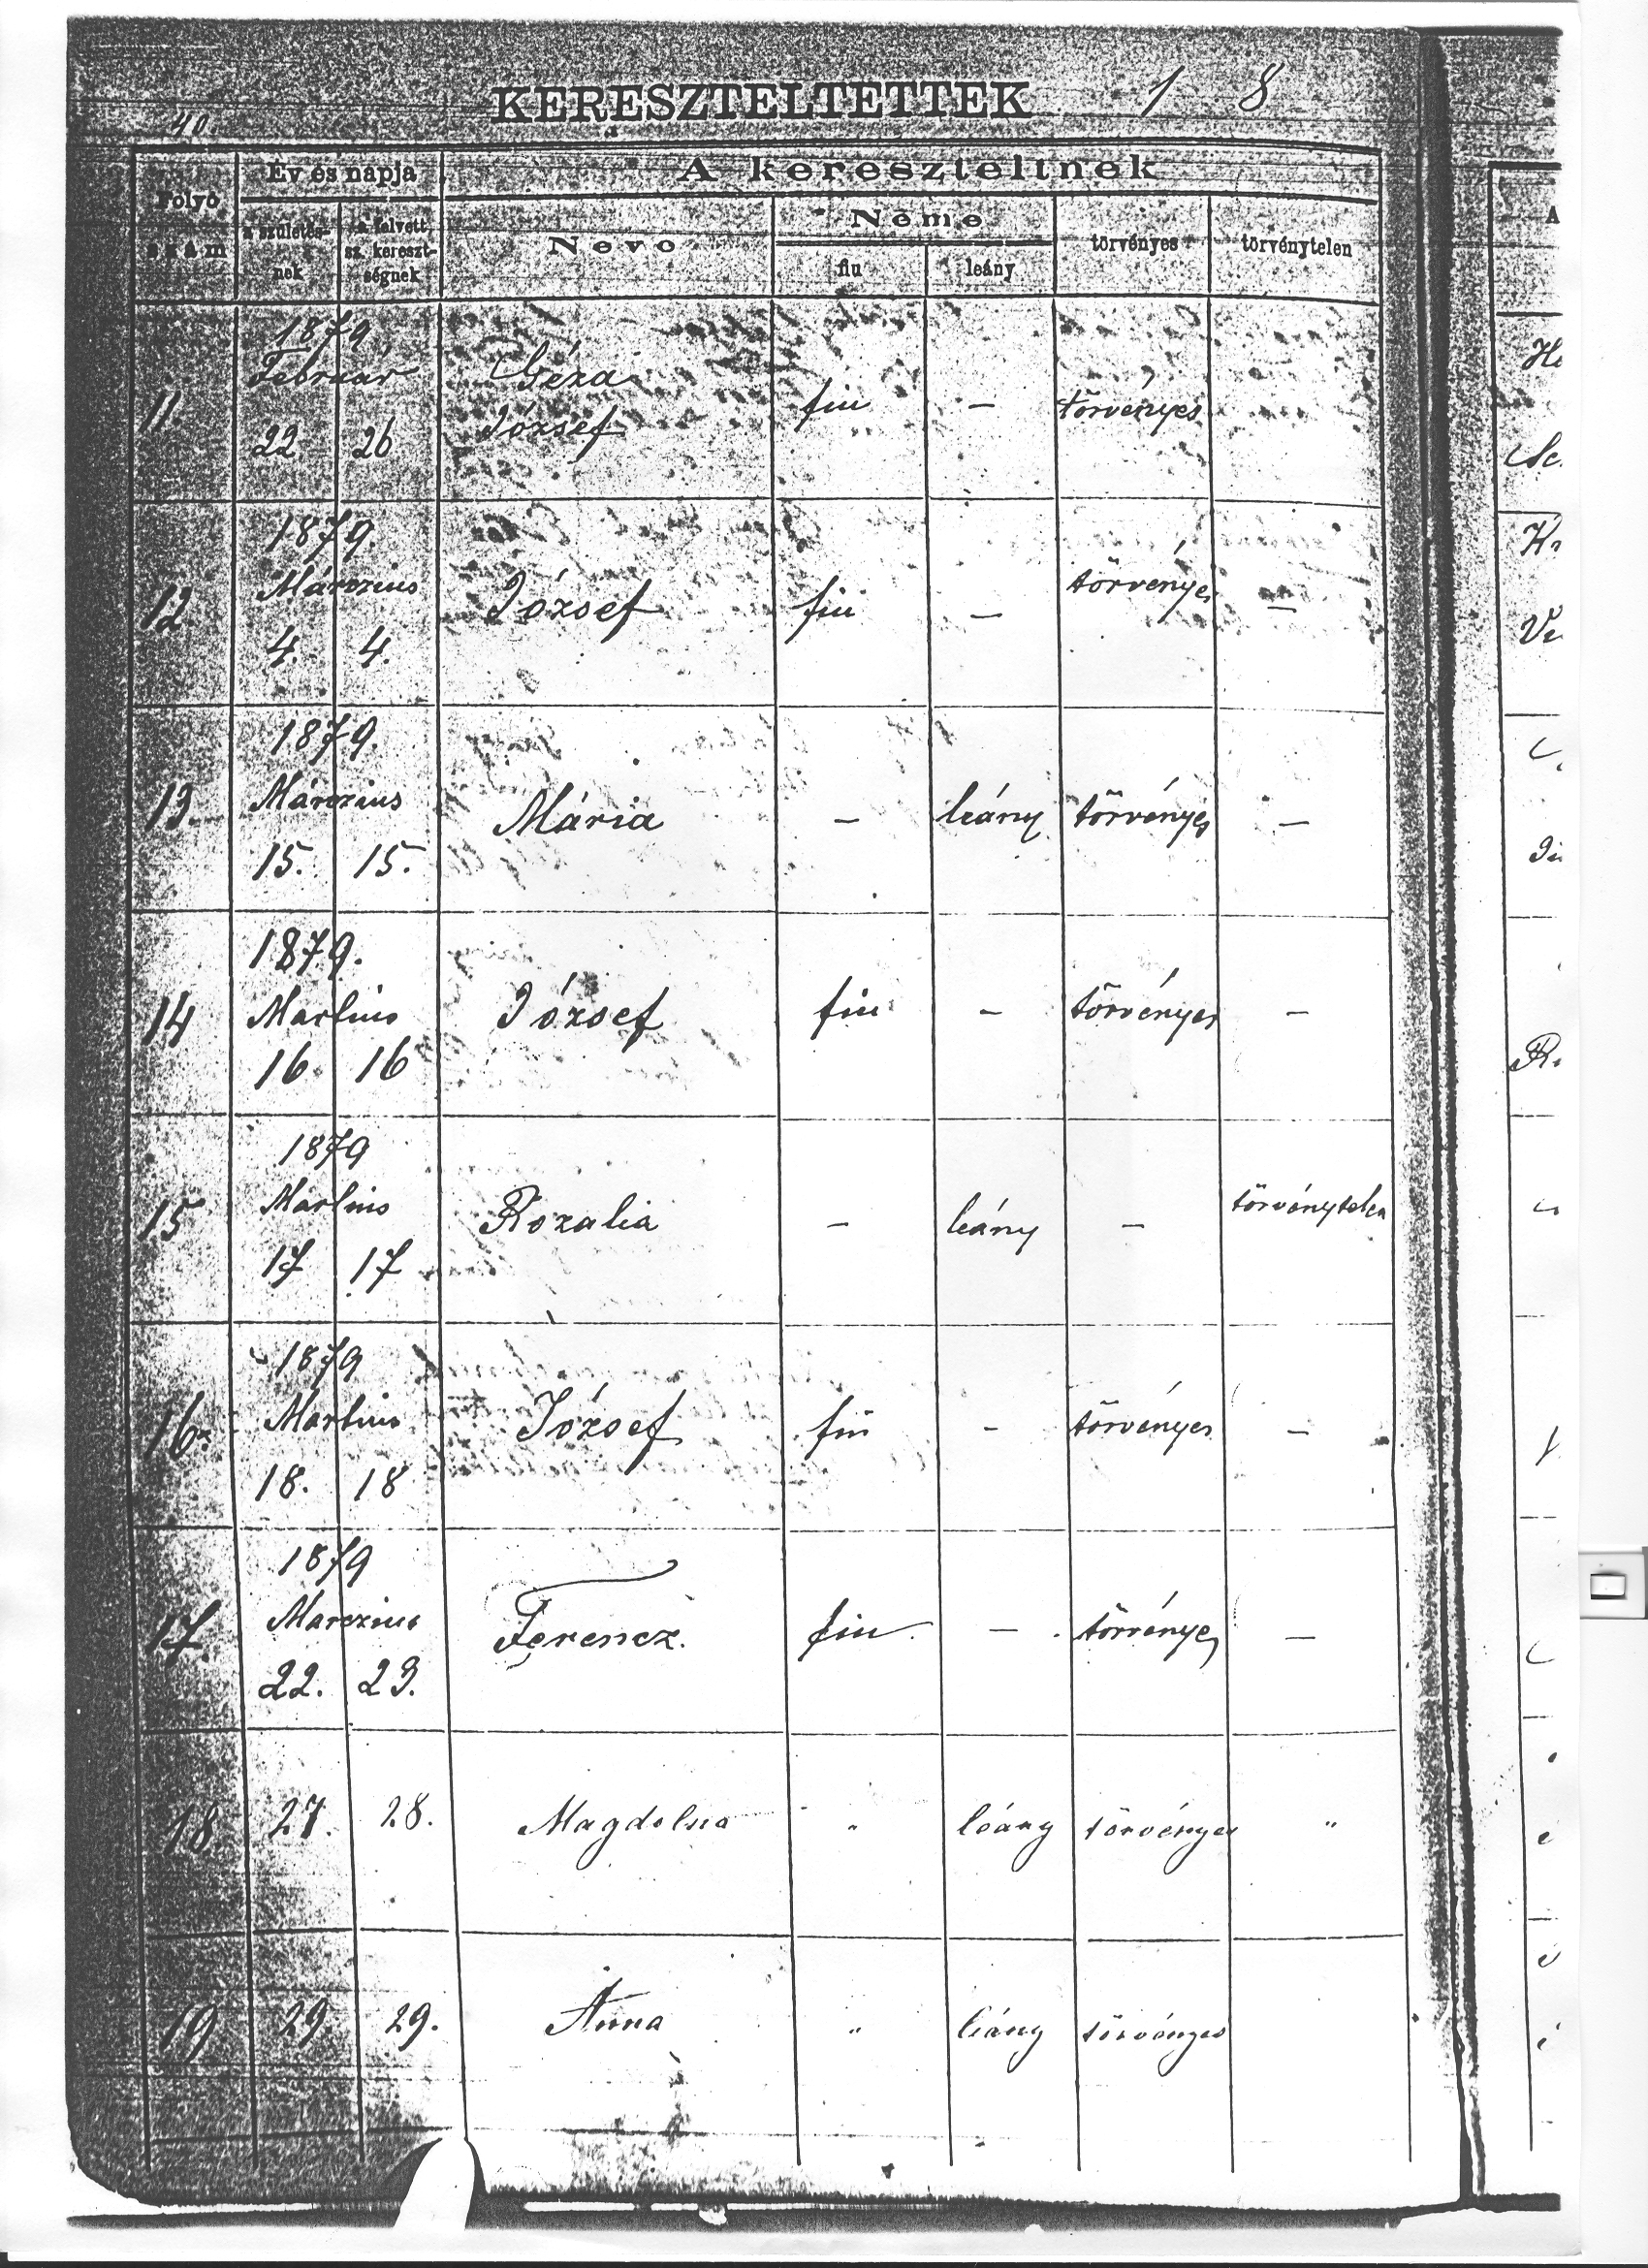 KERESZTELTETTEK 1 8
40.
Folyó szám
Év és napja
A kereszteltnek
a születés-nek
a felvett sz. kereszt-ségnek
Neve
Neme
fiu
leány
törvényes
törvénytelen
1879
Február
11. 22 26 Géza József fiu — törvényes
1879.
Márczius
12 4. 4. József fiu — törvényes —
1879.
Márczius
13. 15. 15. Mária — leány törvényes —
1879.
Martius
14 16. 16 József fiu — törvényes —
1879
Martius
15 17 17 Rozalia — leány — törvénytelen
1879
Martius
16. 18. 18 József fiu — törvényes —
1879
Marczius
17. 22. 23. Ferencz. fiu. — törvényes —
18 27. 28. Magdolna " leány törvényes "
19 29 29. Anna " leány törvényes
A